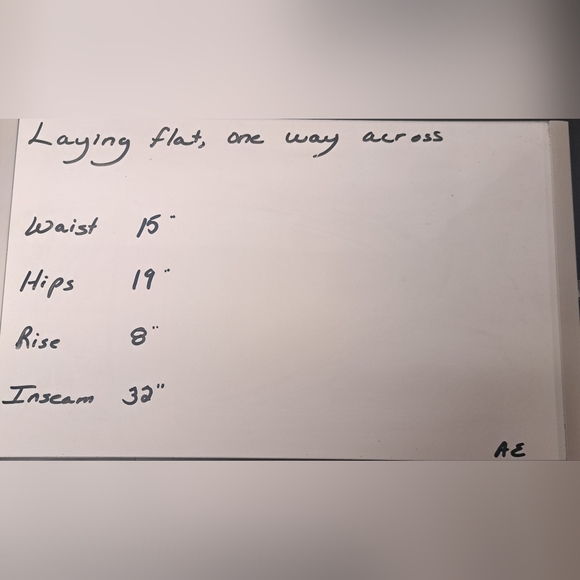 Laying flat, one way across
Waist 15"
Hips 19"
Rise 8"
Inseam 32"
AE